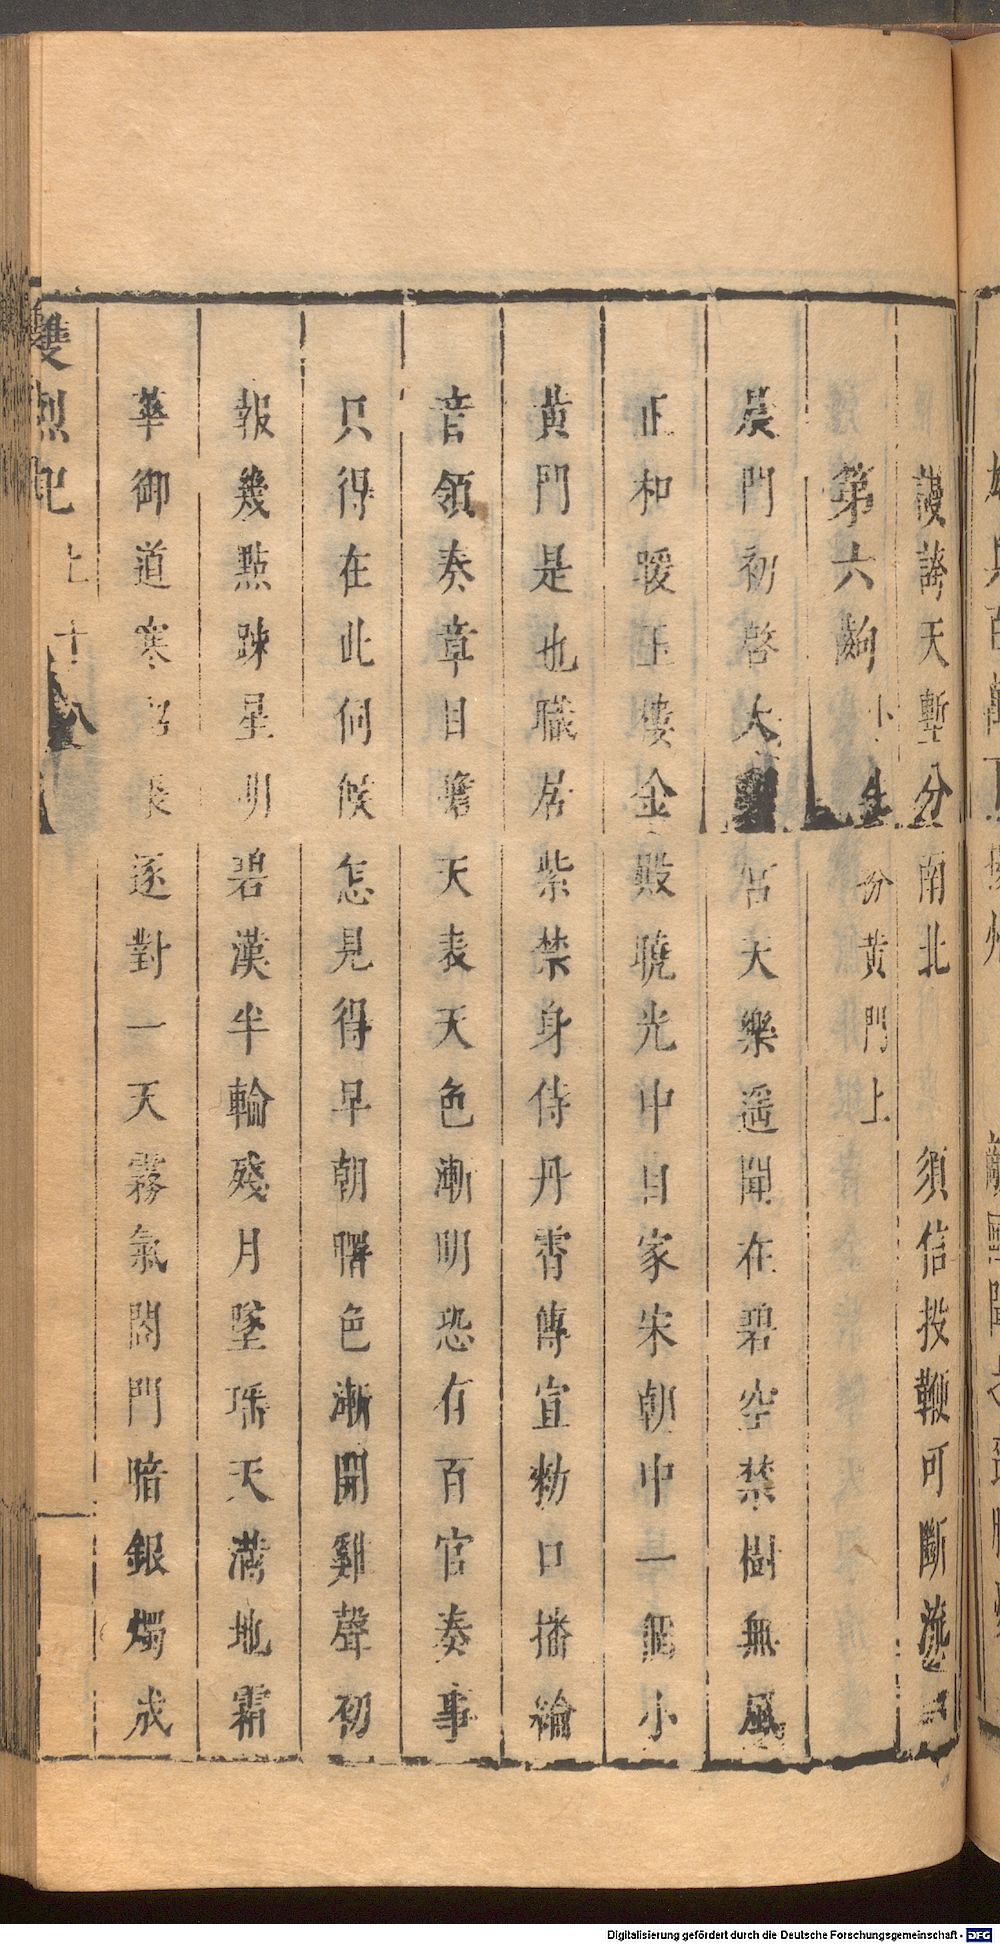 謾誇天塹分南北　須信投鞭可斷流
第六齣　小生扮黃門上
晨門初啓大宮天樂遥聞在碧空禁樹無風
正和暖玉樓金殿曉光中自家宋朝中一個小
黃門是也職居紫禁身侍丹霄傳宣勅口播綸
音領奏章目瞻天表天色漸明恐有百官奏事
只得在此伺候怎見得早朝曙色漸開雞聲初
報幾點踈星明碧漢半輪殘月墜瑶天滿地霜
華御道寒逐對一天霧氣閤門暗銀燭成
雙烈記　上　十八
Digitalisierung gefördert durch die Deutsche Forschungsgemeinschaft - DFG